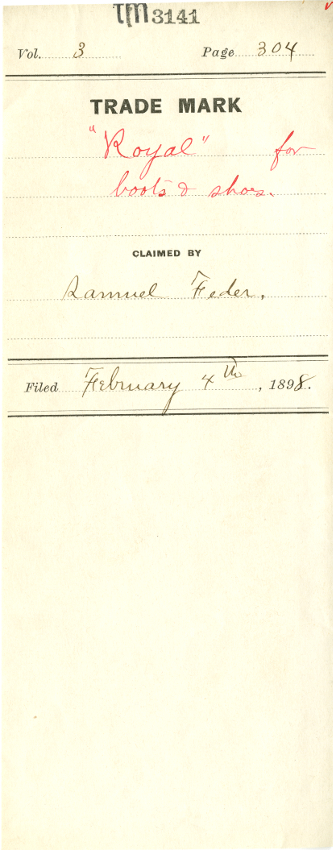 TM3141
Vol. 3 Page 304
TRADE MARK
"Royal" for
boots & shoes.
CLAIMED BY
Samuel Feder,
Filed February 4th, 1898.